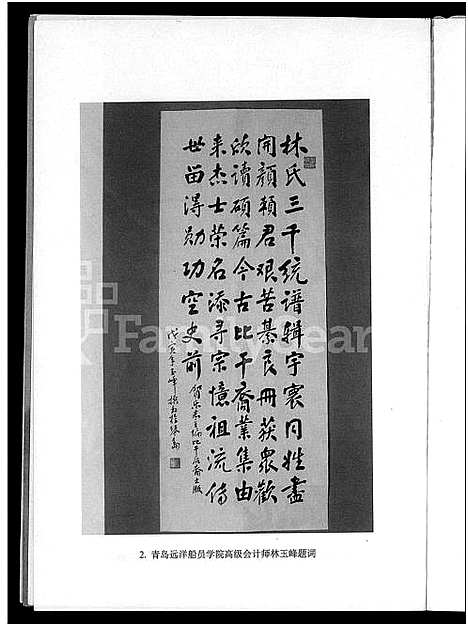 林氏三千统谱辑宇寰同姓尽
开颜赖君艰苦纂良册获众欢
欣读硕篇今古比干裔业集由
来杰士荣名添寻宗忆祖流传
世留得勋功空史前
2. 青岛远洋船员学院高级会计师林玉峰题词
FamilyGear